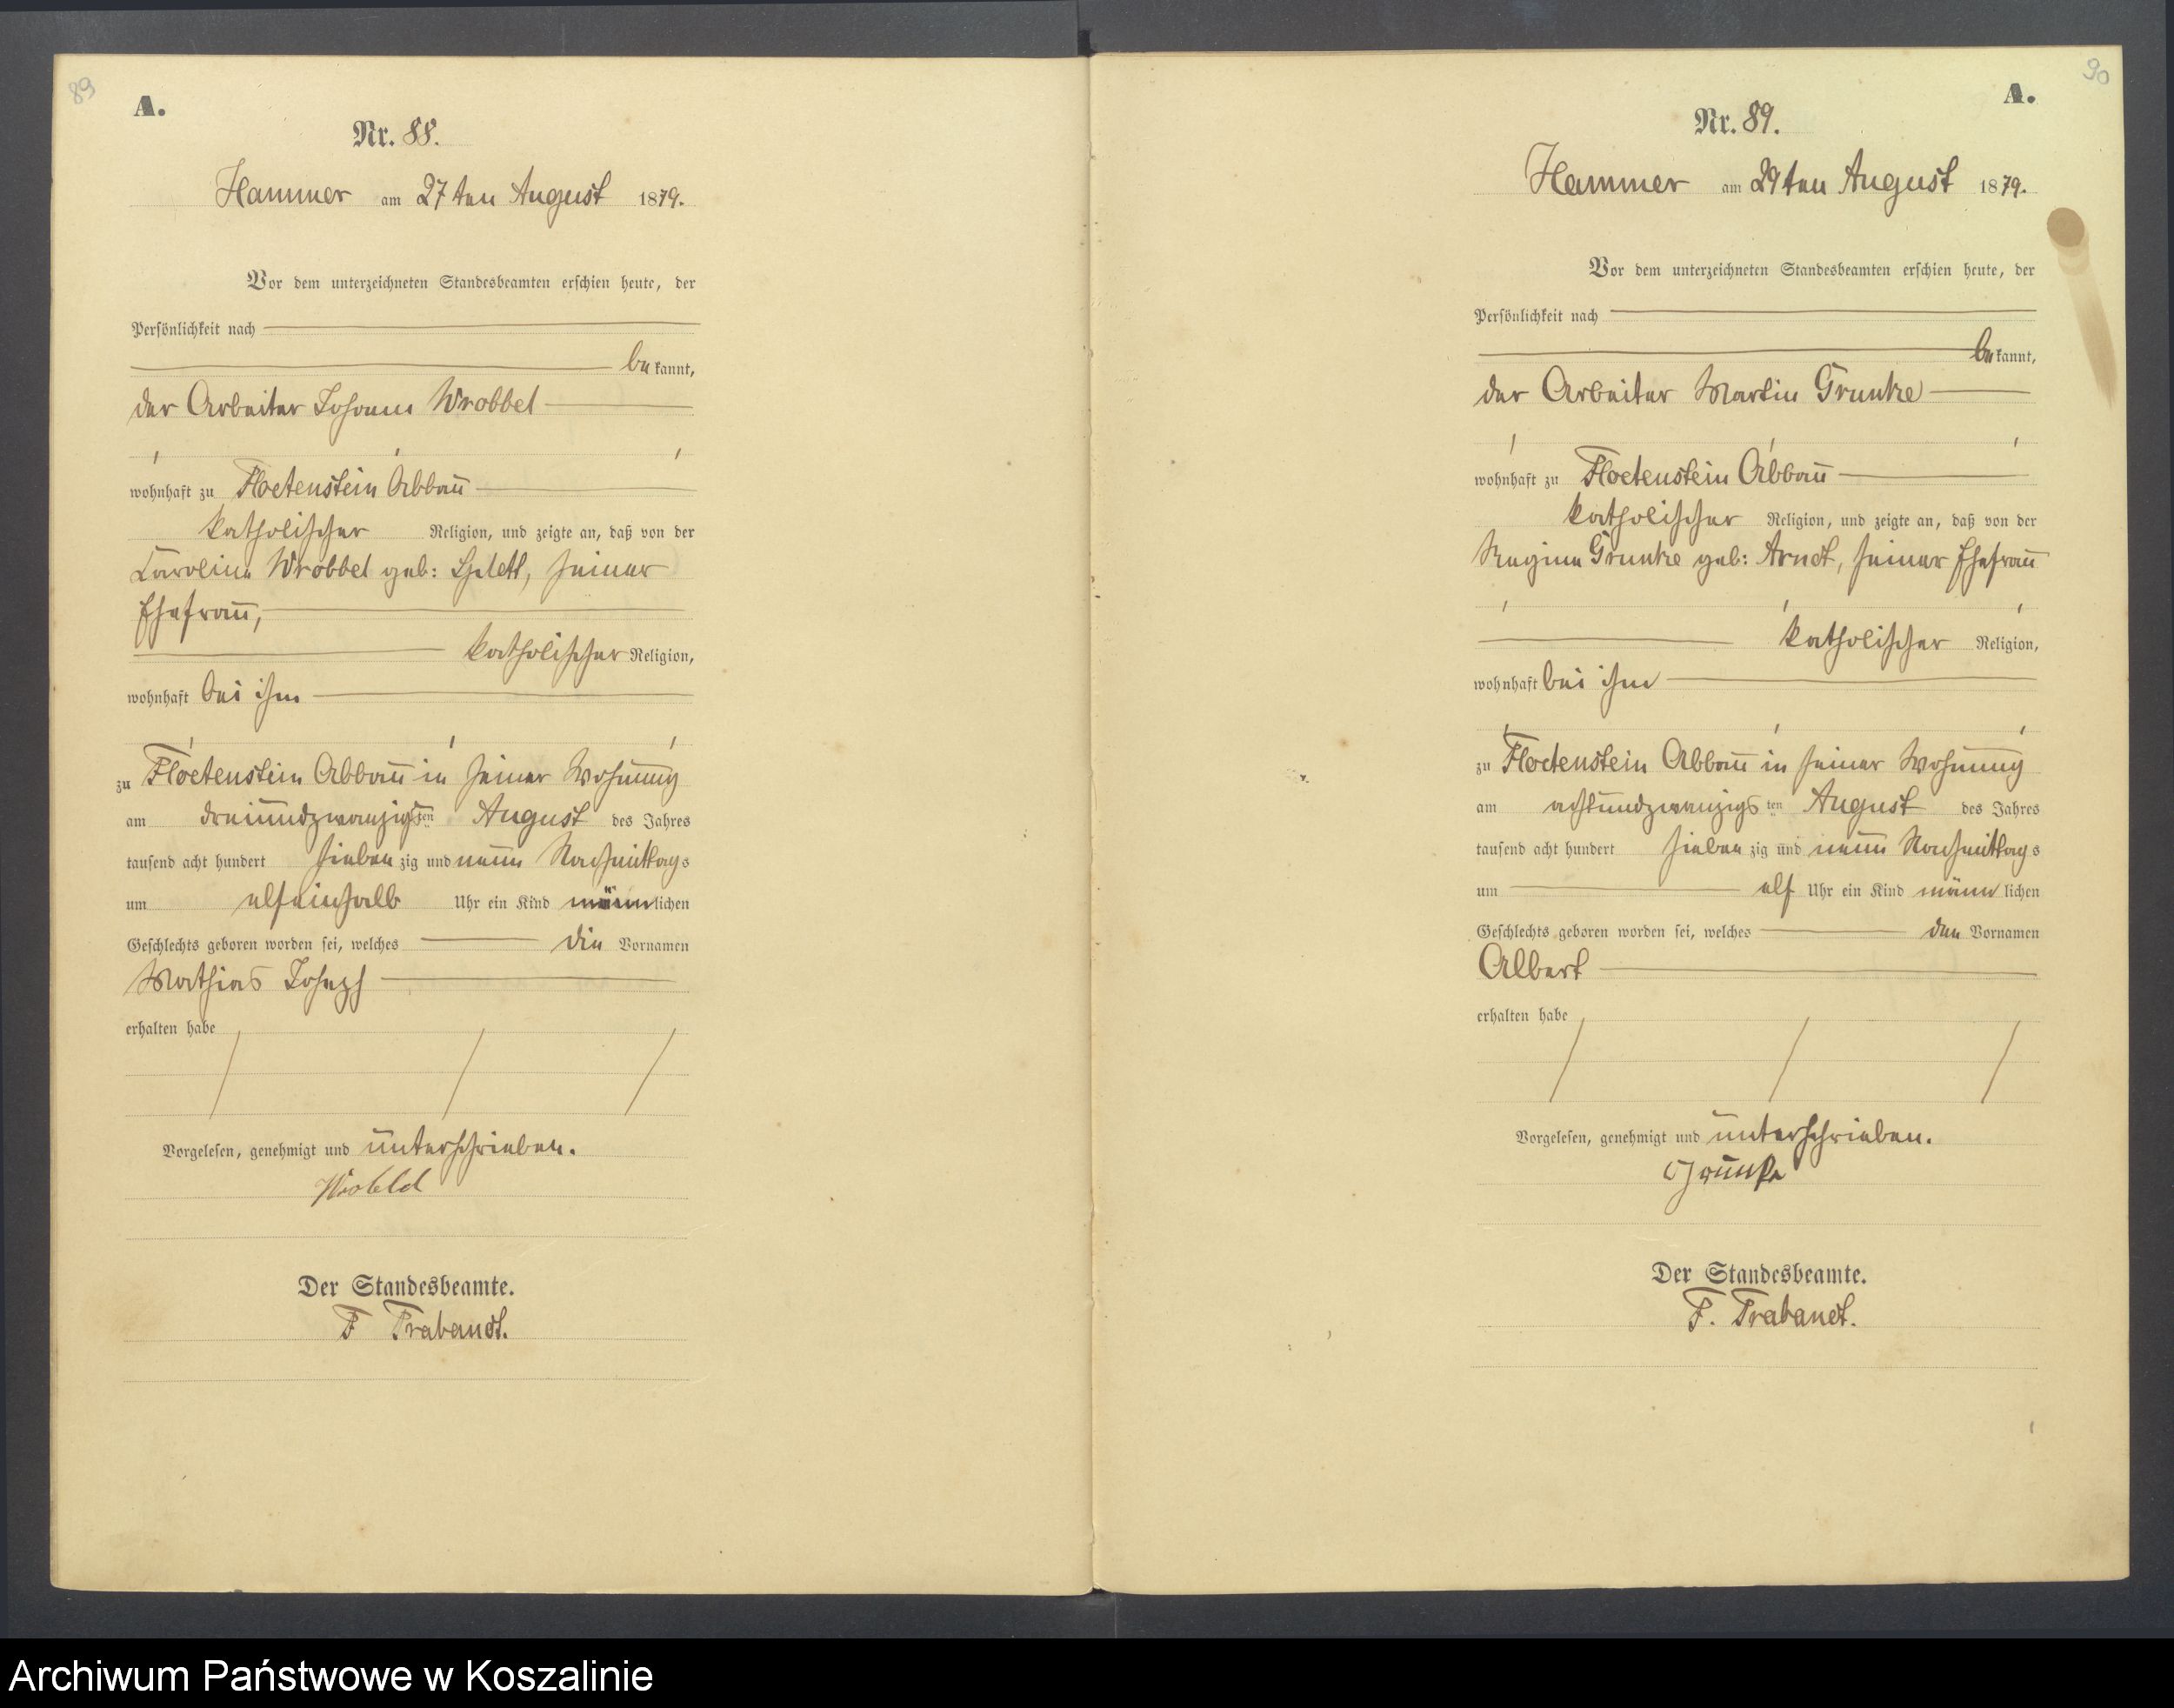 89
A.
Nr. 88.
Hammer am 27ten August 1879.
Vor dem unterzeichneten Standesbeamten erschien heute, der
Persönlichkeit nach
be kannt,
der Arbeiter Johann Wrobbel
wohnhaft zu Floetenstein Abbau
katholischer Religion, und zeigte an, daß von der
Caroline Wrobbel geb: Splett, seiner
Ehefrau,
katholischer Religion,
wohnhaft bei ihm
zu Floetenstein Abbau in seiner Wohnung
am dreiundzwanzigsten August des Jahres
tausend acht hundert sieben zig und neun Nachmittags
um elfeinhalb Uhr ein Kind männlichen
Geschlechts geboren worden sei, welches die Vornamen
Mathias Joseph
erhalten habe
Vorgelesen, genehmigt und unterschrieben.
Der Standesbeamte.
F Trabandt.
90
A.
Nr. 89.
Hammer am 29ten August 1879.
Vor dem unterzeichneten Standesbeamten erschien heute, der
Persönlichkeit nach
be kannt,
der Arbeiter Martin Grunke
wohnhaft zu Floetenstein Abbau
katholischer Religion, und zeigte an, daß von der
Regina Grunke geb: Arndt, seiner Ehefrau
katholischer Religion,
wohnhaft bei ihm
zu Floetenstein Abbau in seiner Wohnung
am achtundzwanzigs ten August des Jahres
tausend acht hundert sieben zig und neun Nachmittags
um elf Uhr ein Kind männ lichen
Geschlechts geboren worden sei, welches den Vornamen
Albert
erhalten habe
Vorgelesen, genehmigt und unterschrieben.
Grunke
Der Standesbeamte.
F. Trabandt.
Archiwum Państwowe w Koszalinie